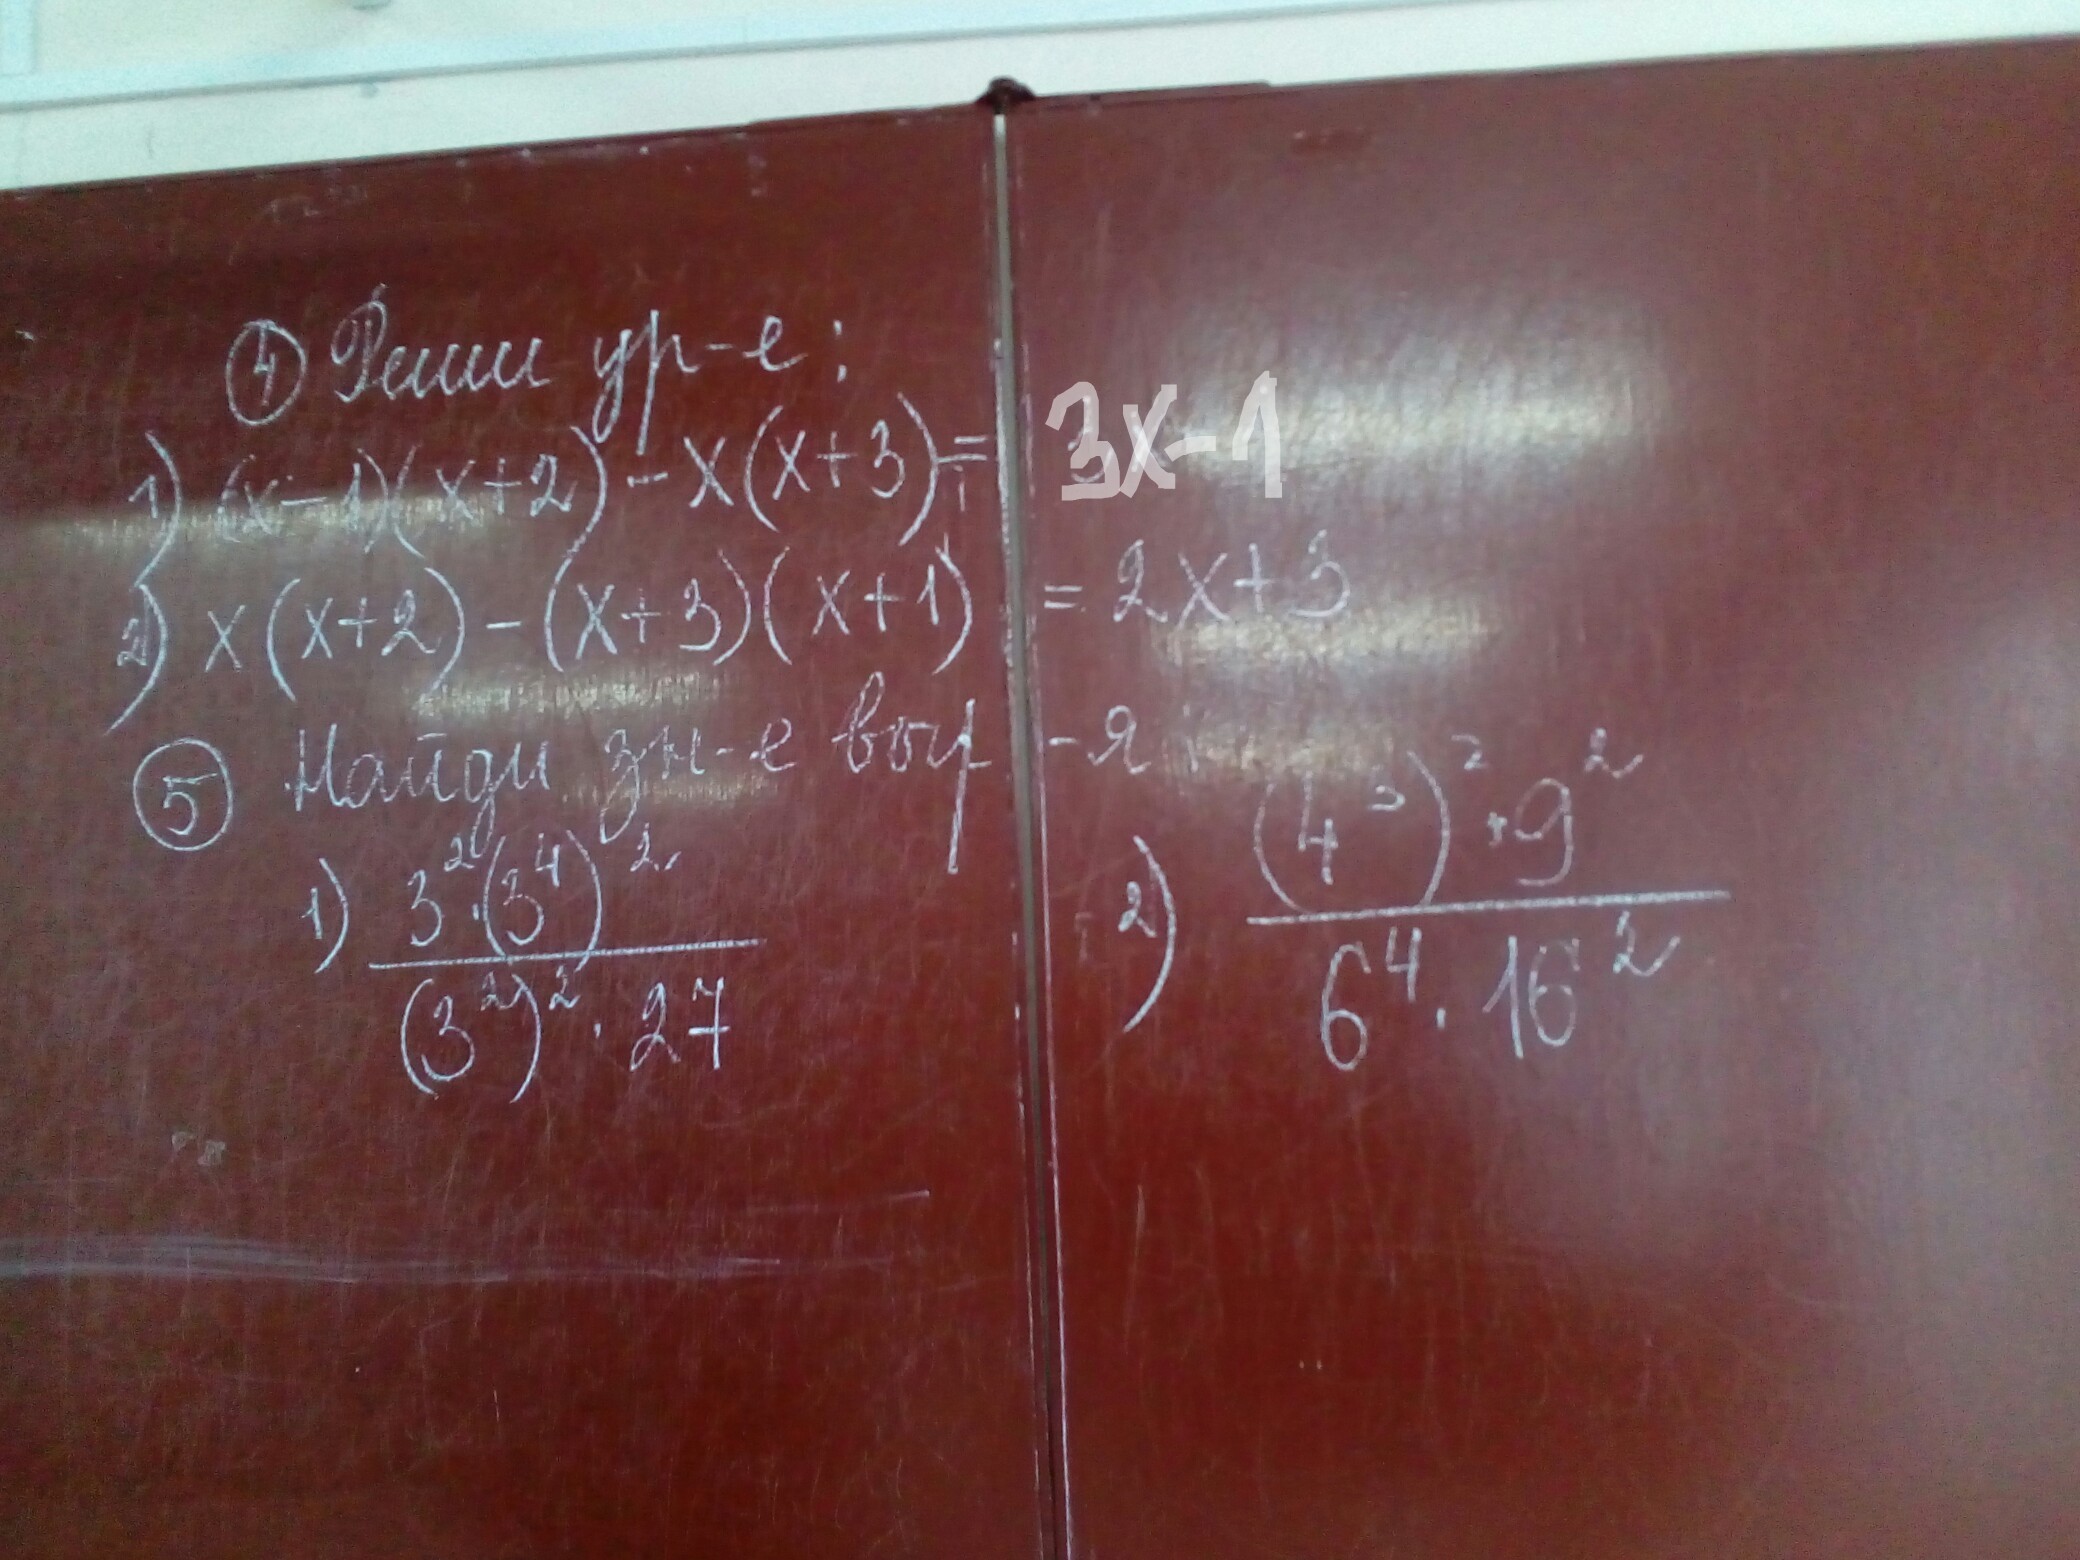 ④ Реши ур-е:
1) (x-1)(x+2)-x(x+3)= 3x-1
2) x(x+2)-(x+3)(x+1) = 2x+3
⑤ Найди зн-е выр-я:
1) \frac{3^2·(3^4)^2}{(3^2)^2·27} 2) \frac{(4^3)^2·9^2}{6^4·16^2}